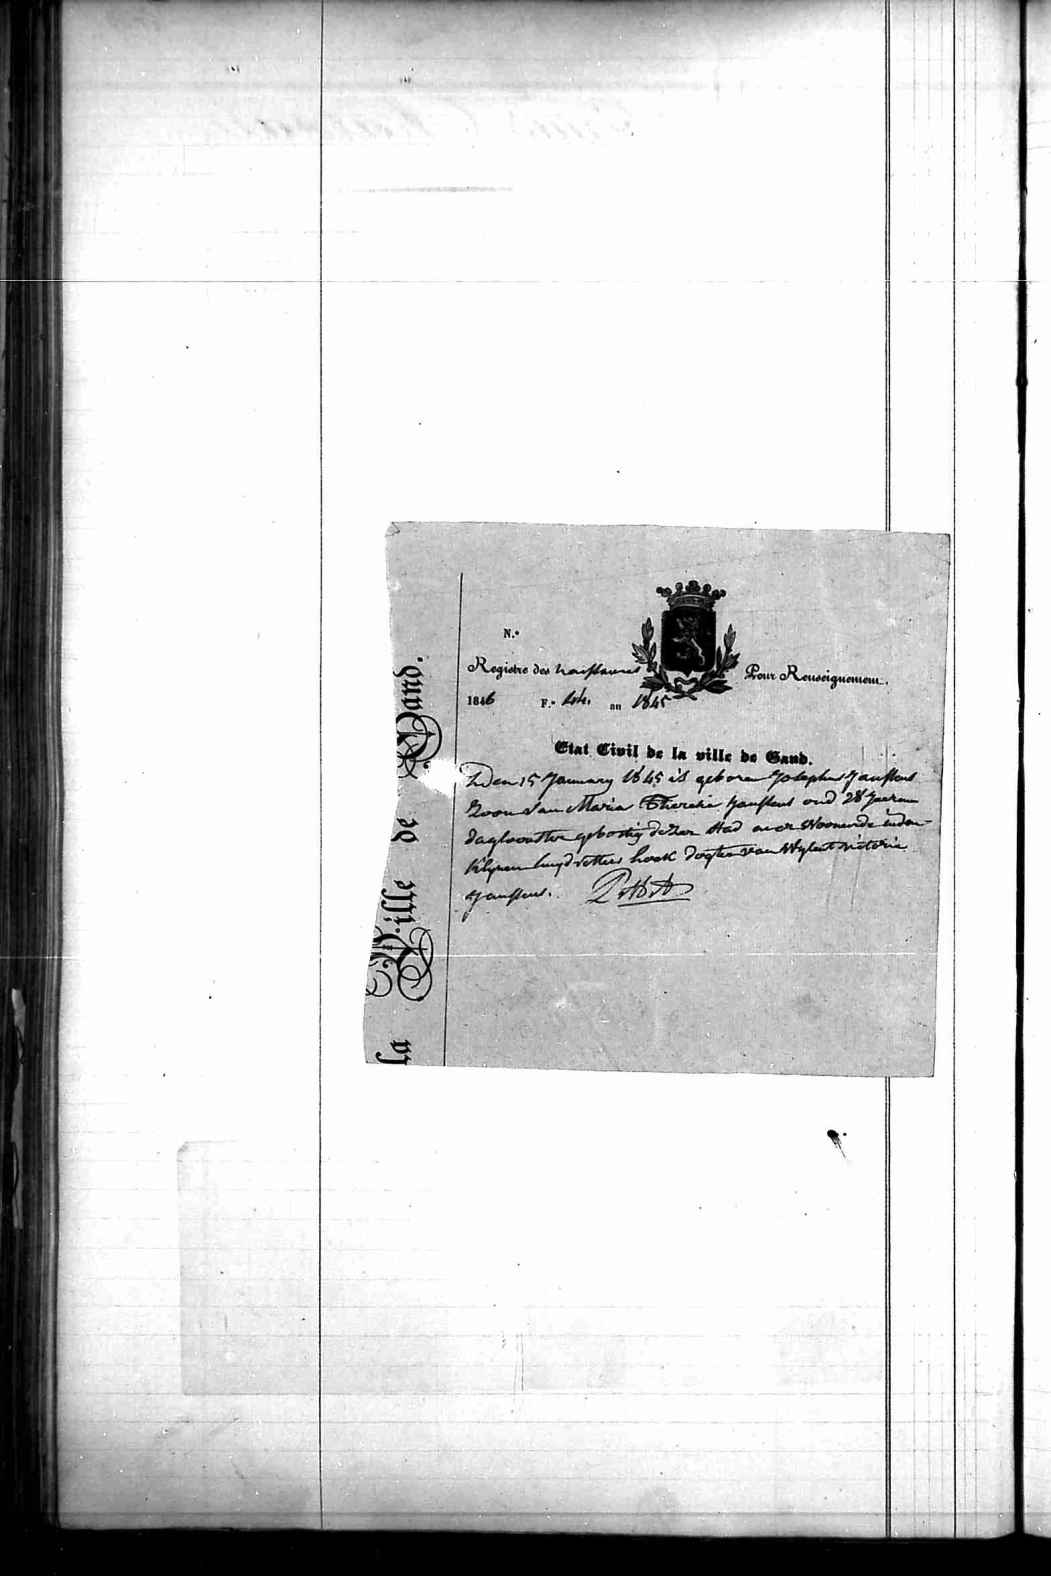 N.º
Registre des naissances
Pour Renseignement.
1846 F.º 44. an 1845
Etat Civil de la ville de Gand.
Den 15 January 1845 is geboren Josephus Janssens
Zoon van Maria Theresia Janssens oud 28 Jaeren
daglooster gebortig dezer Stad over Woonende inden
klynen huydvetters hoek dogter van Wylent Victoria
Janssens.
la Ville de Gand.